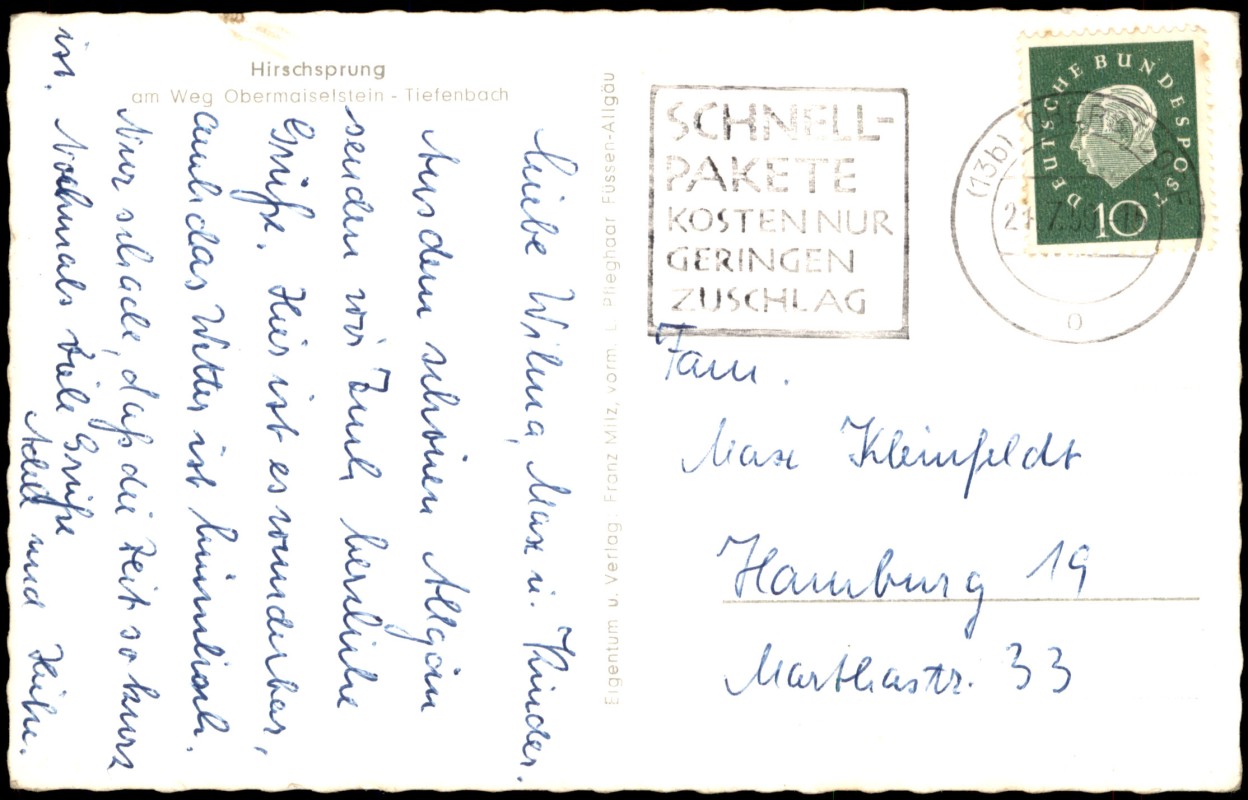 Hirschsprung
am Weg Obermaiselstein - Tiefenbach
Liebe Wilma, Max u. Kinder.
Aus dem schönen Allgäu
senden wir Euch herzliche
Grüße. Hier ist es wunderbar,
auch das Wetter ist himmlisch.
Nur schade, daß die Zeit so kurz
ist. Nochmals viele Grüße
und
Eigentum u. Verlag: Franz Milz, vorm. L. Plieghaar Füssen-Allgäu
SCHNELL-
PAKETE
KOSTEN NUR
GERINGEN
ZUSCHLAG
DEUTSCHE BUNDESPOST
10
(13b)
Fam.
Max Kleinfeldt
Hamburg 19
Marthastr. 33